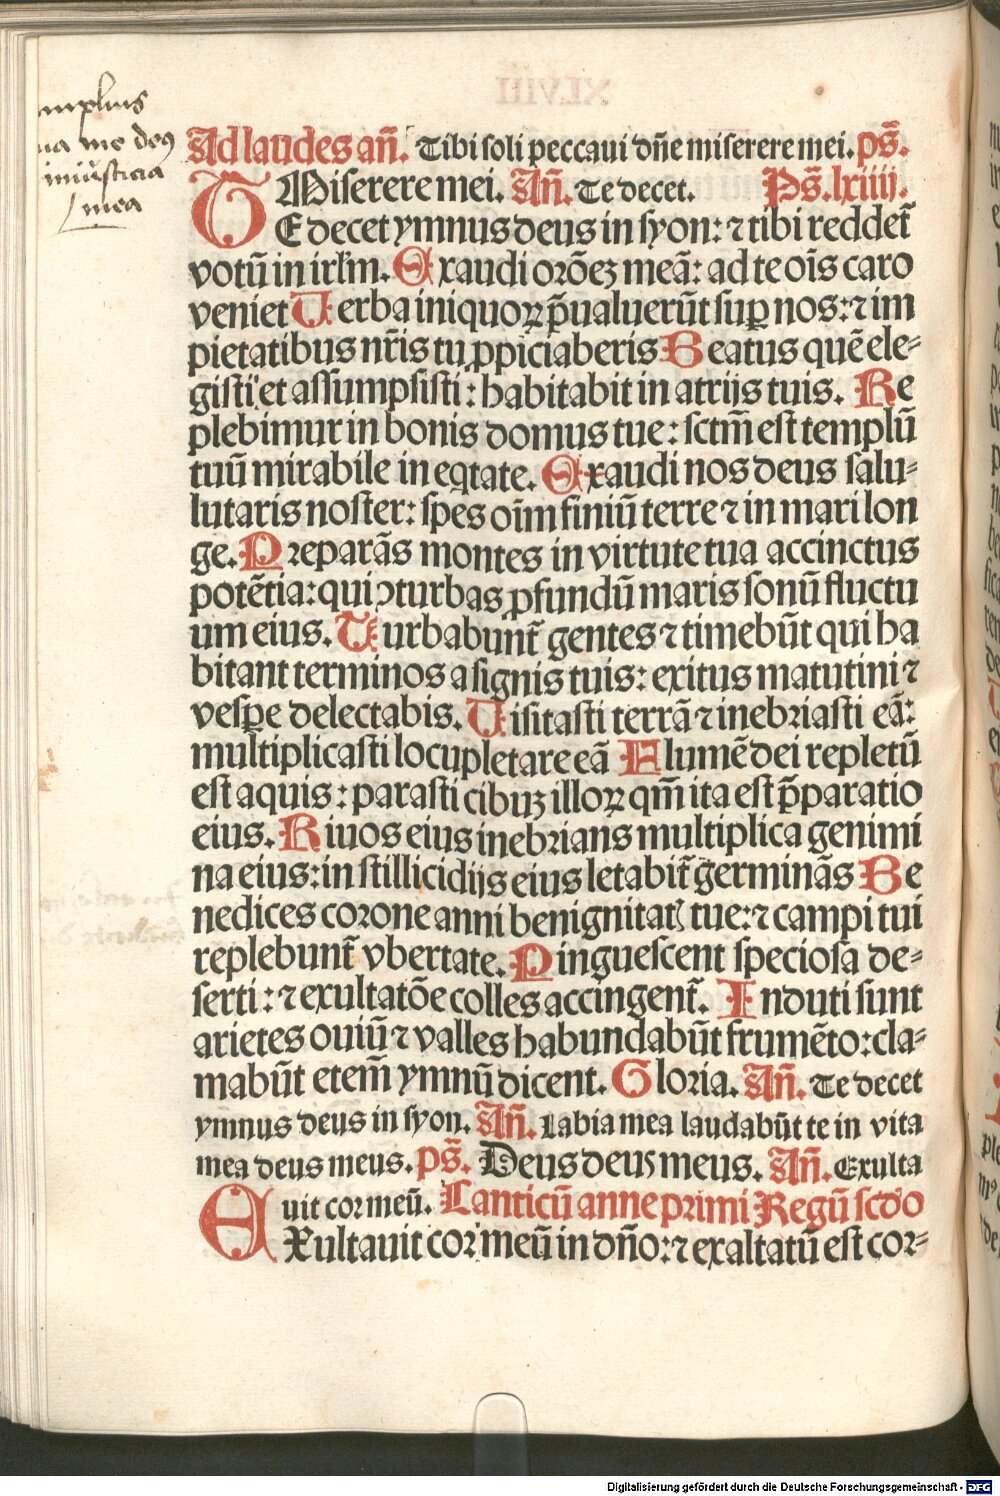 mplius
ua me deꝰ
iniusticia
mea
Ad laudes añ. Tibi soli peccaui dñe miserere mei. ps̃.
Miserere mei. Añ. Te decet. Ps̃. lxiiij.
TE decet ymnus deus in syon: ⁊ tibi reddet̃
votũ in irl'm. Exaudi orõeꝫ meã: ad te oĩs caro
veniet Uerba iniquoꝝ p̃ualuerũt suꝑ nos: ⁊ im
pietatibus nr̃is tu ꝓpiciaberis Beatus quẽ ele⸗
gisti et assumpsisti: habitabit in atrijs tuis. Re
plebimur in bonis domus tue: sctm̃ est templũ
tuũ mirabile in eqtate. Exaudi nos deus salu⸗
lutaris noster: spes oĩm finiũ terre ⁊ in mari lon
ge. Preparãs montes in virtute tua accinctus
potẽtia: qui ↄturbas ꝓfundũ maris sonũ fluctu
um eius. Turbabunt̃ gentes ⁊ timebũt qui ha
bitant terminos a signis tuis: exitus matutini ⁊
vesꝑe delectabis. Uisitasti terrã ⁊ inebriasti eã:
multiplicasti locupletare eã Flumẽ dei repletũ
est aquis: parasti cibuꝫ illoꝝ qm̃ ita est p̃paratio
eius. Riuos eius inebrians multiplica genimi
na eius: in stillicidijs eius letabit̃ germinãs Be
nedices corone anni benignitatꝭ tue: ⁊ campi tui
replebunt̃ vbertate. Pinguescent speciosa de⸗
serti: ⁊ exultatõe colles accingent̃. Induti sunt
arietes ouiũ ⁊ valles habundabũt frumẽto: cla⸗
mabũt etem̃ ymnũ dicent. Gloria. Añ. Te decet
ymnus deus in syon. Añ. Labia mea laudabũt te in vita
mea deus meus. ps̃. Deus deus meus. Añ. Exulta
uit cor meũ. Canticũ anne primi Regũ scdo
EXultauit cor meũ in dño: ⁊ exaltatũ est cor⸗
Digitalisierung gefördert durch die Deutsche Forschungsgemeinschaft - DFG